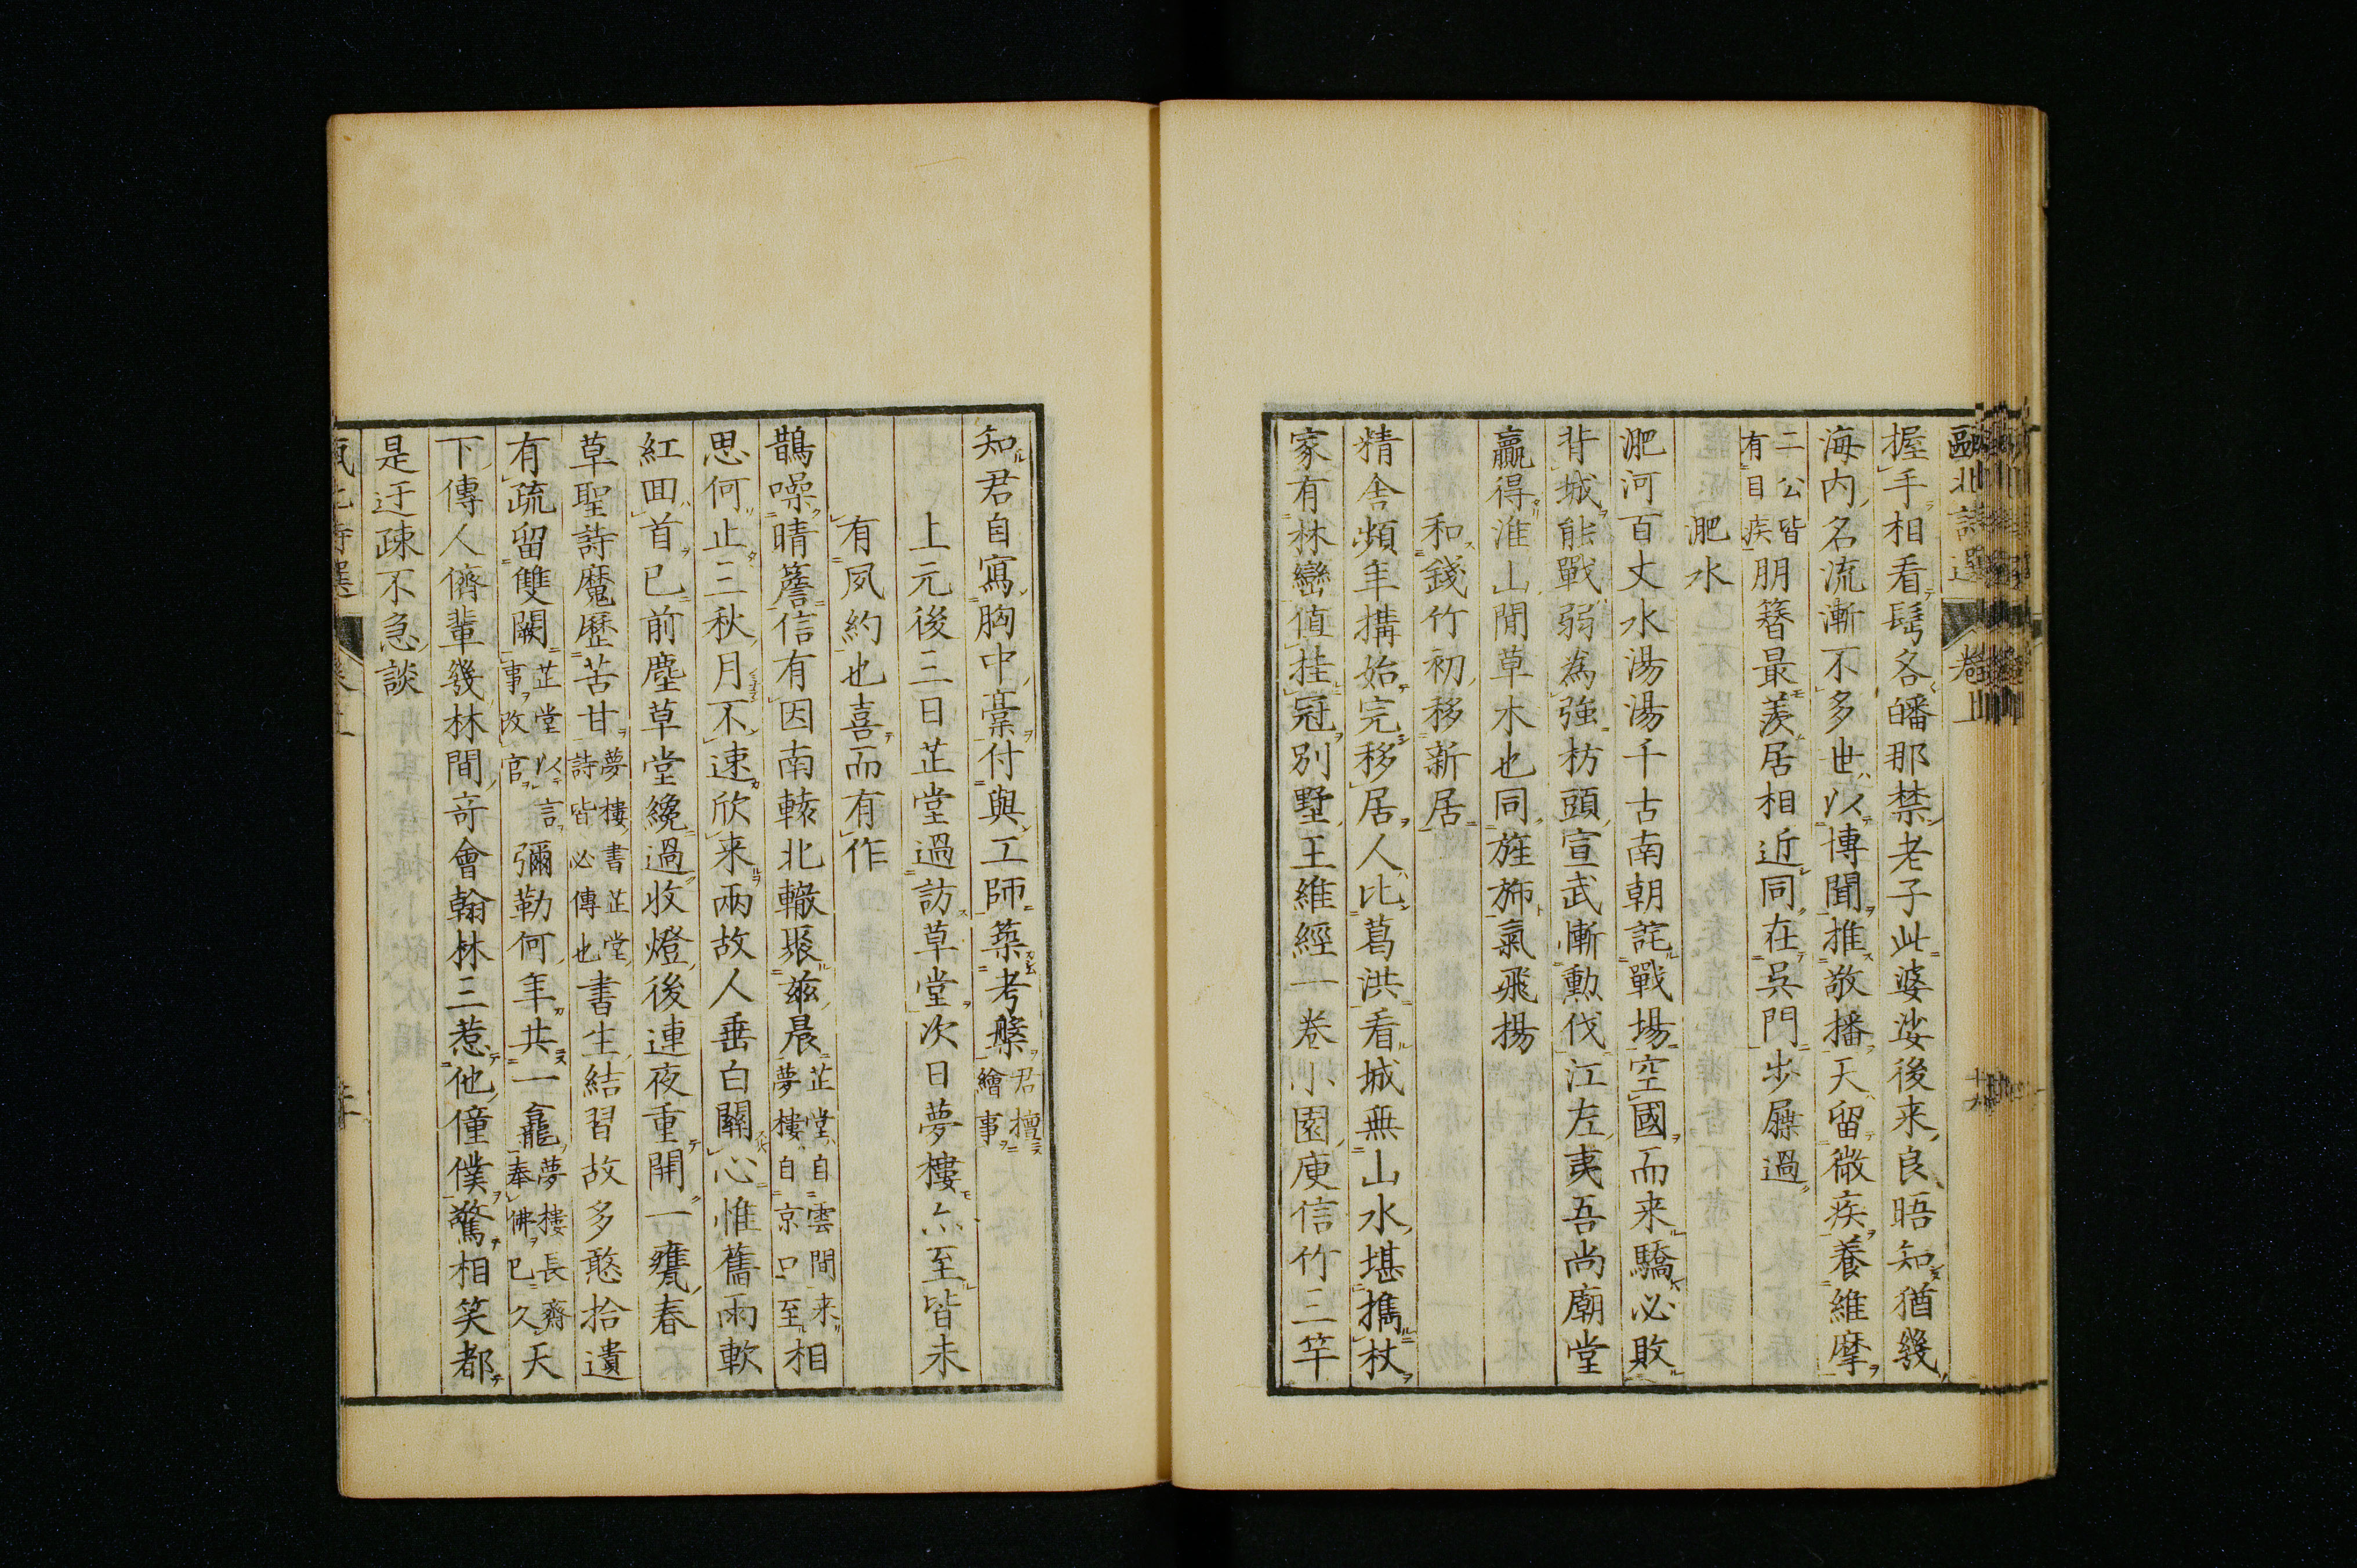 甌北詩選 卷上
握手相看髩各皤那禁老子此婆娑後来良晤知猶幾
海内名流漸不多世以博聞推敬播天留微疾養維摩
二公皆有目疾朋簪最羨居相近同在吳門步屧過
淝水
淝河百丈水湯湯千古南朝詫戰場空國而来驕必敗
背城能戰弱為強枋頭宣武慚勳伐江左夷吾尚廟堂
贏得淮山間草木也同旌斾氣飛揚
和錢竹初移新居
精舎頻年搆始完移居人比葛洪看城無山水堪擕杖
家有林巒值挂冠別墅王維經一卷小園庾信竹三竿
知君自寫胸中藁付與工師築考槃君擅繪事
上元後三日芷堂過訪草堂次日夢樓亦至皆未
有夙約也喜而有作
鵲噪晴簷信有因南轅北轍聚茲晨芷堂自雲間来夢樓自京口至相
思何止三秋月不速欣来兩故人垂白關心惟舊雨軟
紅囬首已前塵草堂纔過收燈後連夜重開一甕春
草聖詩魔歷苦甘夢樓書芷堂詩皆必傳也書生結習故多憨拾遺
有疏留雙闕芷堂以言事改官彌勒何年共一龕夢樓長齋奉佛已久天
下傳人儕輩幾林間奇會翰林三惹他僮僕驚相笑都
是迂疎不急談